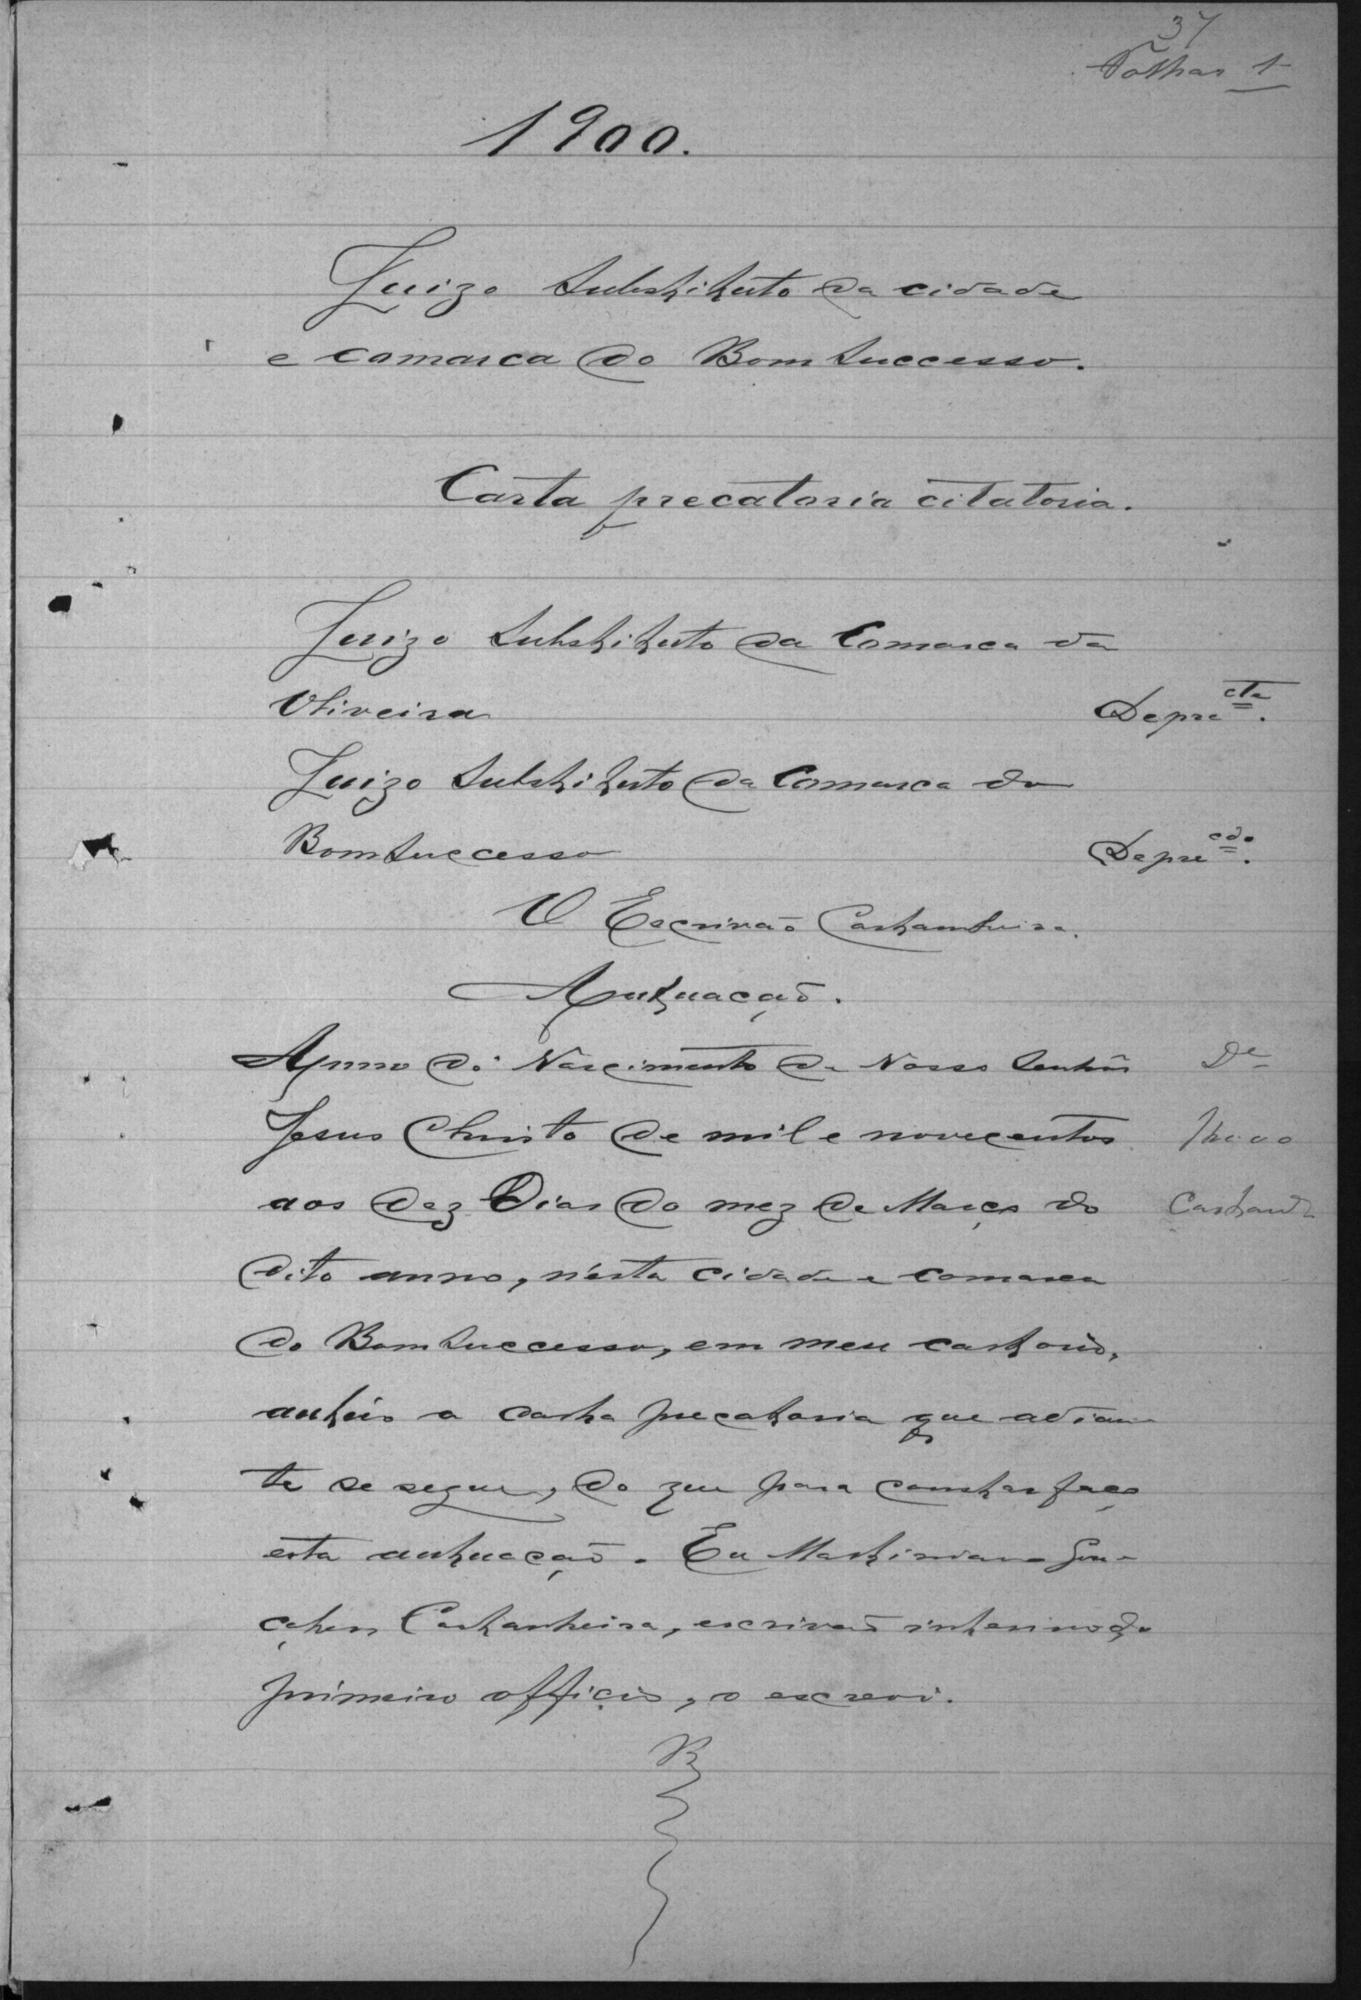 37
Folhas 1
1900.
Juizo Substituto da cidade
e comarca do Bom Successo.
Carta precatoria citatoria.
Juizo Substituto da Comarca da
Oliveira Depre cte.
Juizo Substituto da Comarca do
Bom Successo Depre cdo.
O Escrivão Castanheira.
Autuação.
Anno do Nascimento de Nosso Senhor De
Jesus Christo de mil e novecentos
aos dez Dias do mez de Março do Castanh
dito anno, n'esta cidade e comarca
do Bom Successo, em meu cartorio,
autúo a carta precatoria que adian
te se segue, do que para constar faço
esta autuação. Eu Martiniano
Castanheira, escrivão interino do
primeiro officio, o escrevi.